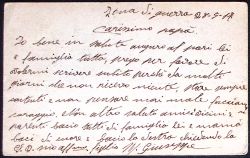 Zona di guerra 28-5-18
Carissimo papà
Io bene in salute auguro al pari lei
e famiglia tutta, prego per favore di
scrivere subito perchè da molti
giorni che non ricevo niente, stare sempre
contenti e non pensare mai male facciano
coraggio, e tanti altri saluti amici vicini,
parenti baci tutti di famiglia lei e mamma
baci di cuore e bacio la destra chiedendo la
S.B. suo aff figlio Giuseppe